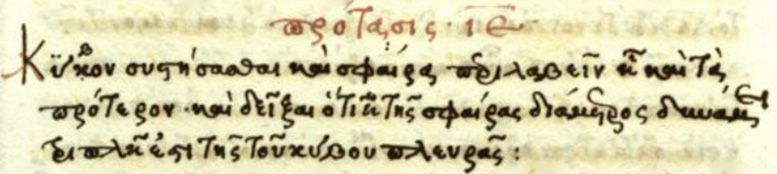 πρότασις · ιε
Κύβον συστήσασθαι καὶ σφαίρᾳ περιλαβεῖν ᾗ καὶ τὰ
πρότερον · καὶ δεῖξαι ὅτι ἡ τῆς σφαίρας διάμετρος δυνάμει
τριπλῆ ἐστι τῆς τοῦ κύβου πλευρᾶς :